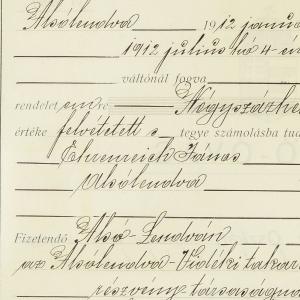 Alsólendva 1912 január
1912 julius hó 4-én
váltónál fogva
rendelet em re Négyszázhe
értéke felvétetett s tegye számolásba tud
Ehrenreich János
Alsólendva
Fizetendő Alsó-Lendván
az Alsólendva-Vidéki takar
részvény-társaságná